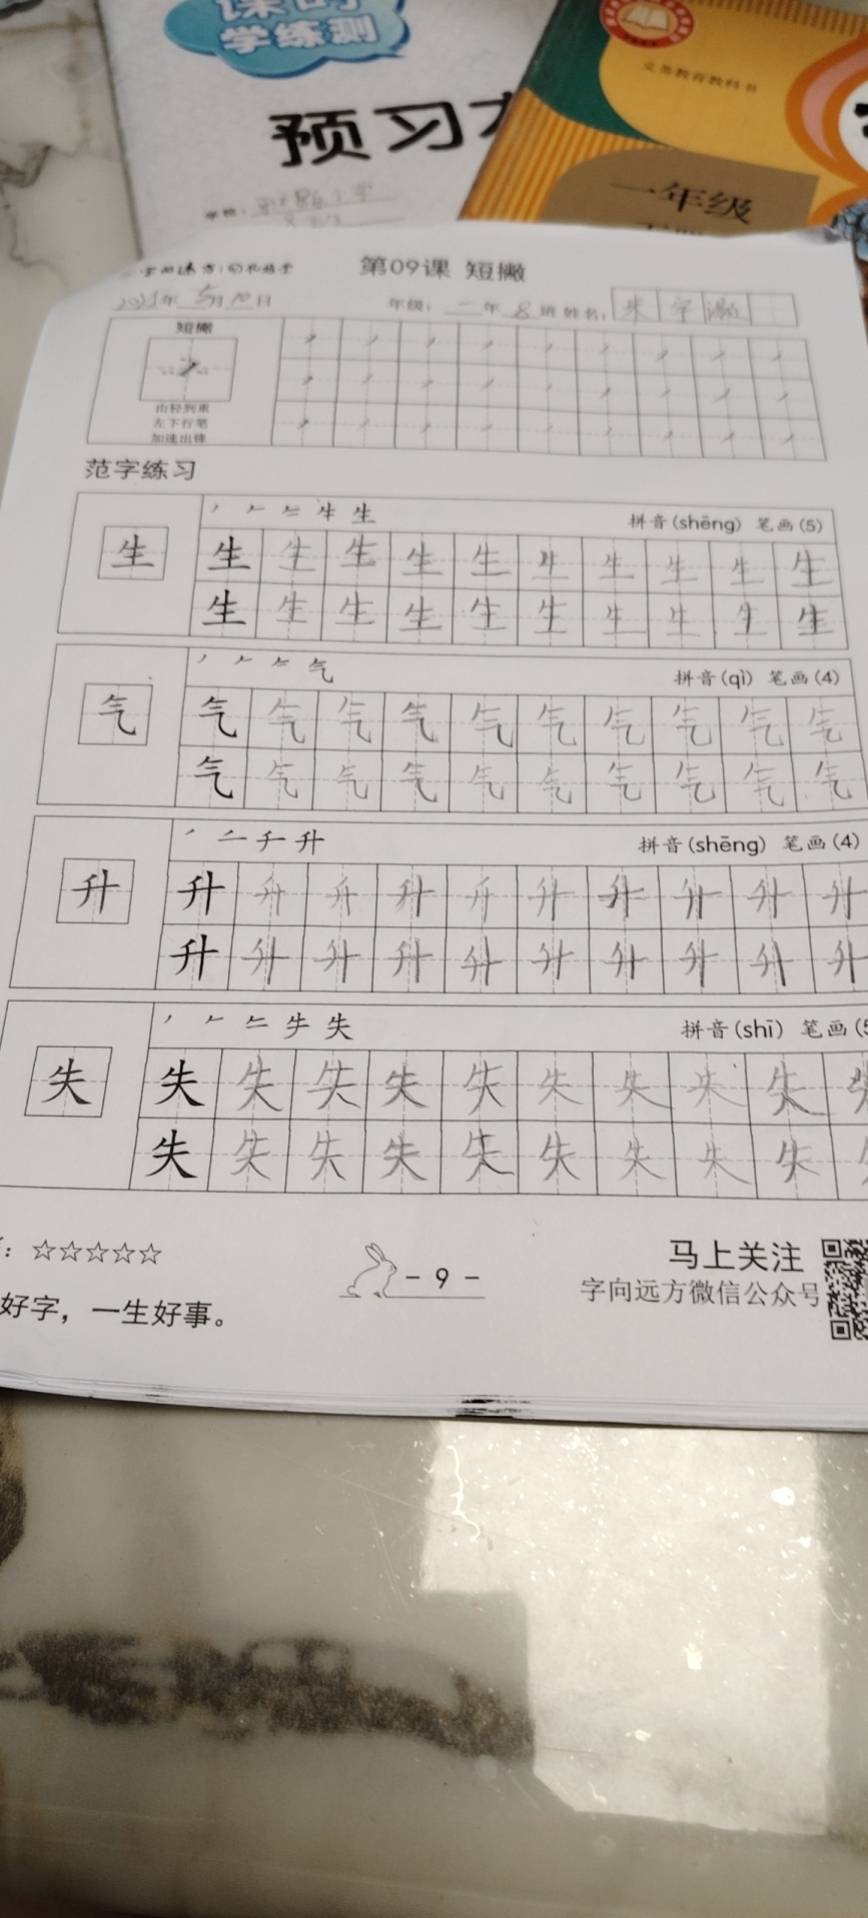 课时
学练测
预习
义务教育教科书
一年级
第09课 短撇
年 5月10日 年级: 一年 8班 姓名: 朱 宇
短撇
由轻到重
左下行笔
加速出锋
范字练习
生 拼音(shēng) 笔画(5)
生 生 生 生 生 生 生 生 生 生 生
生 生 生 生 生 生 生 生 生 生
气 拼音(qì) 笔画(4)
气 气 气 气 气 气 气 气 气 气 气
气 气 气 气 气 气 气 气 气 气
升 拼音(shēng) 笔画(4)
升 升 升 升 升 升 升 升 升 升 升
升 升 升 升 升 升 升 升 升 升
失 拼音(shī) 笔画(5
失 失 失 失 失 失 失 失 失 失
失 失 失 失 失 失 失 失 失
: ☆☆☆☆☆
- 9 -
马上关注
字向远方微信公众号
好字，一生好事。